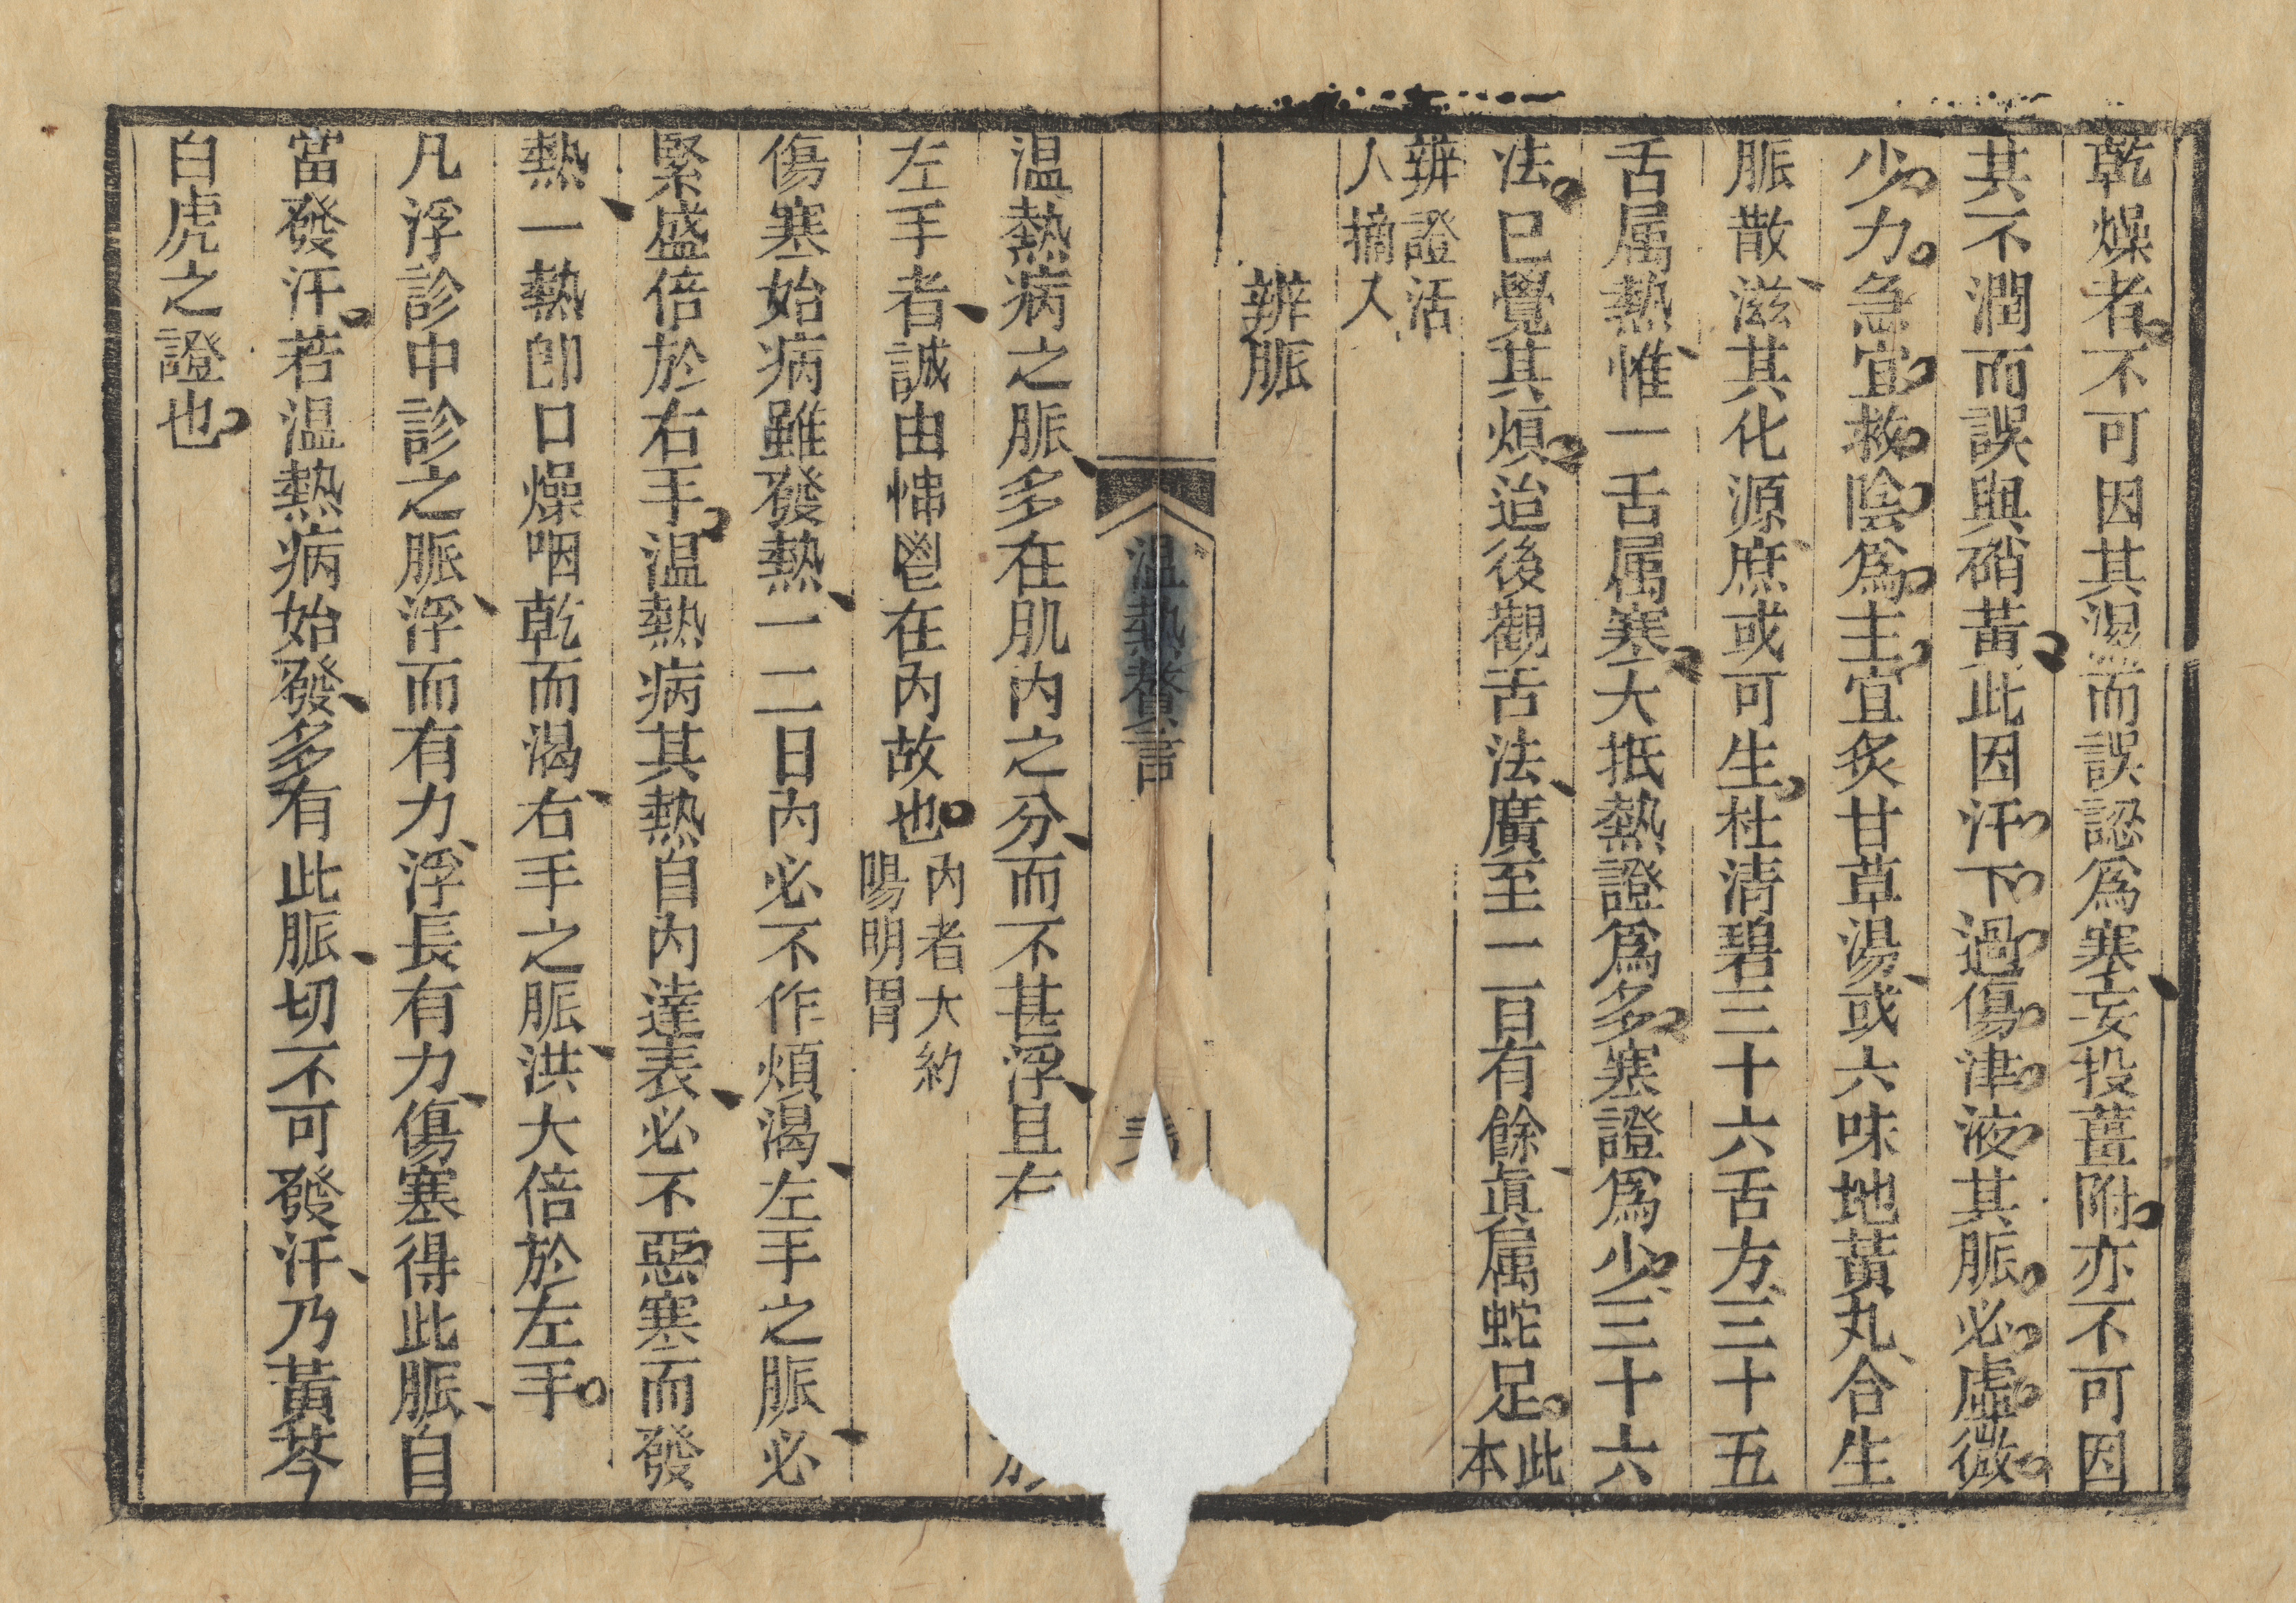 乾燥者不可因其濕而誤認爲寒妄投薑附亦不可因
其不潤而誤與硝黃此因汗下過傷津液其脈必虛微
少力急宜救陰爲主宜炙甘草湯或六味地黃丸合生
脈散滋其化源庶或可生杜清碧三十六舌方三十五
舌属熱惟一舌属寒大抵熱證爲多寒證爲少三十六
法已覺其煩迨後觀舌法廣至一百有餘眞属蛇足此
本
辨證活
人摘入
辨脈
温熱贅言
温熱病之脈多在肌肉之分而不甚浮且右
左手者誠由怫鬱在內故也內者大約
陽明胃
傷寒始病雖發熱一二日內必不作煩渴左手之脈必
緊盛倍於右手温熱病其熱自內達表必不惡寒而發
熱一熱卽口燥咽乾而渴右手之脈洪大倍於左手
凡浮診中診之脈浮而有力浮長有力傷寒得此脈自
當發汗若温熱病始發多有此脈切不可發汗乃黃芩
白虎之證也